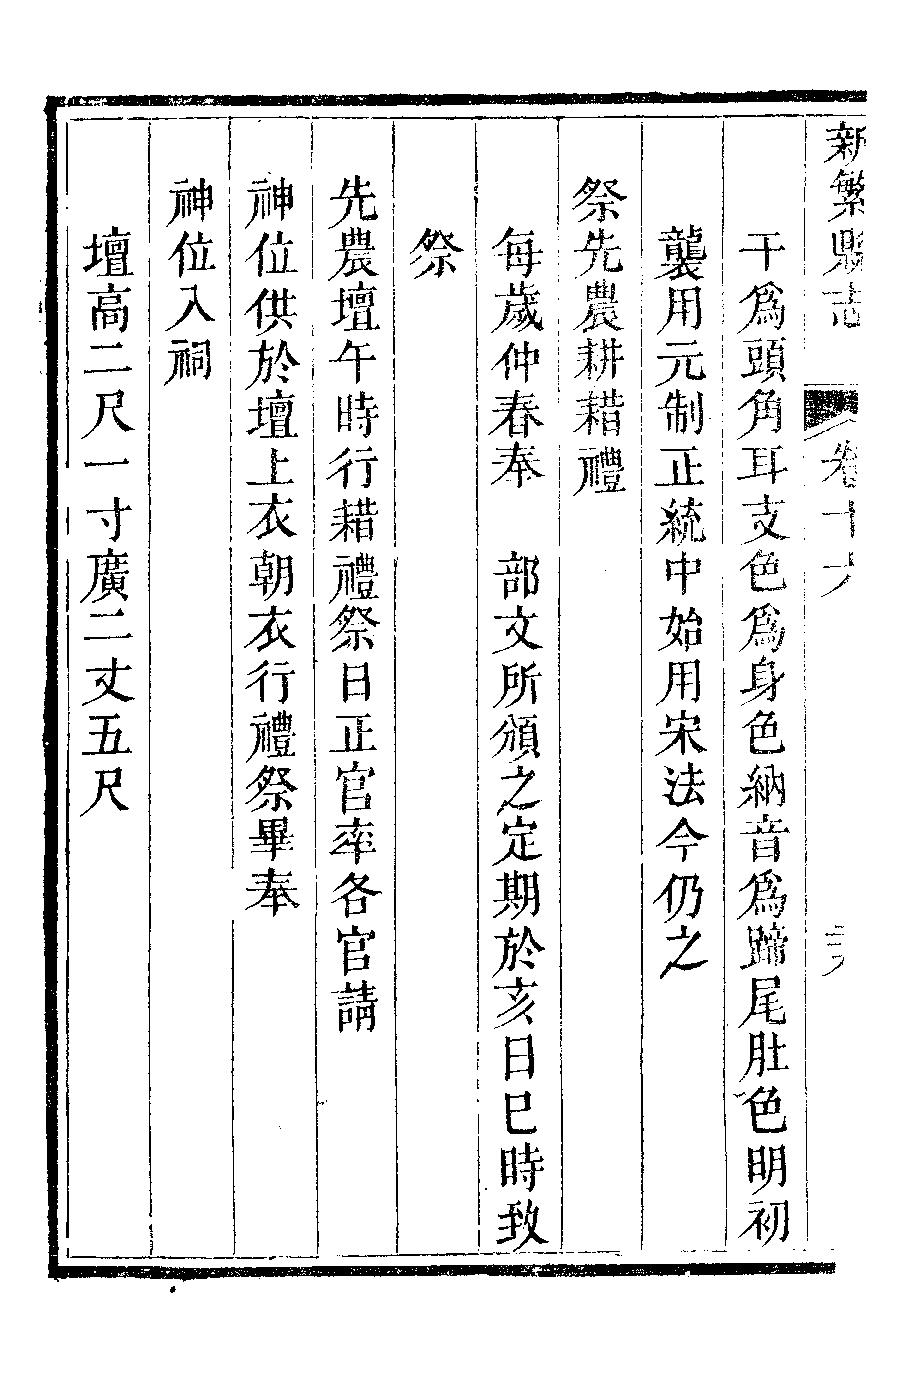 新繁縣志
卷十六
干為頭角耳支色為身色納音為蹄尾肚色明初
襲用元制正統中始用宋法今仍之
祭先農耕耤禮
每歲仲春奉　部文所頒之定期於亥日巳時致
祭
先農壇午時行耤禮祭日正官率各官請
神位供於壇上衣朝衣行禮祭畢奉
神位入祠
壇高二尺一寸廣二丈五尺